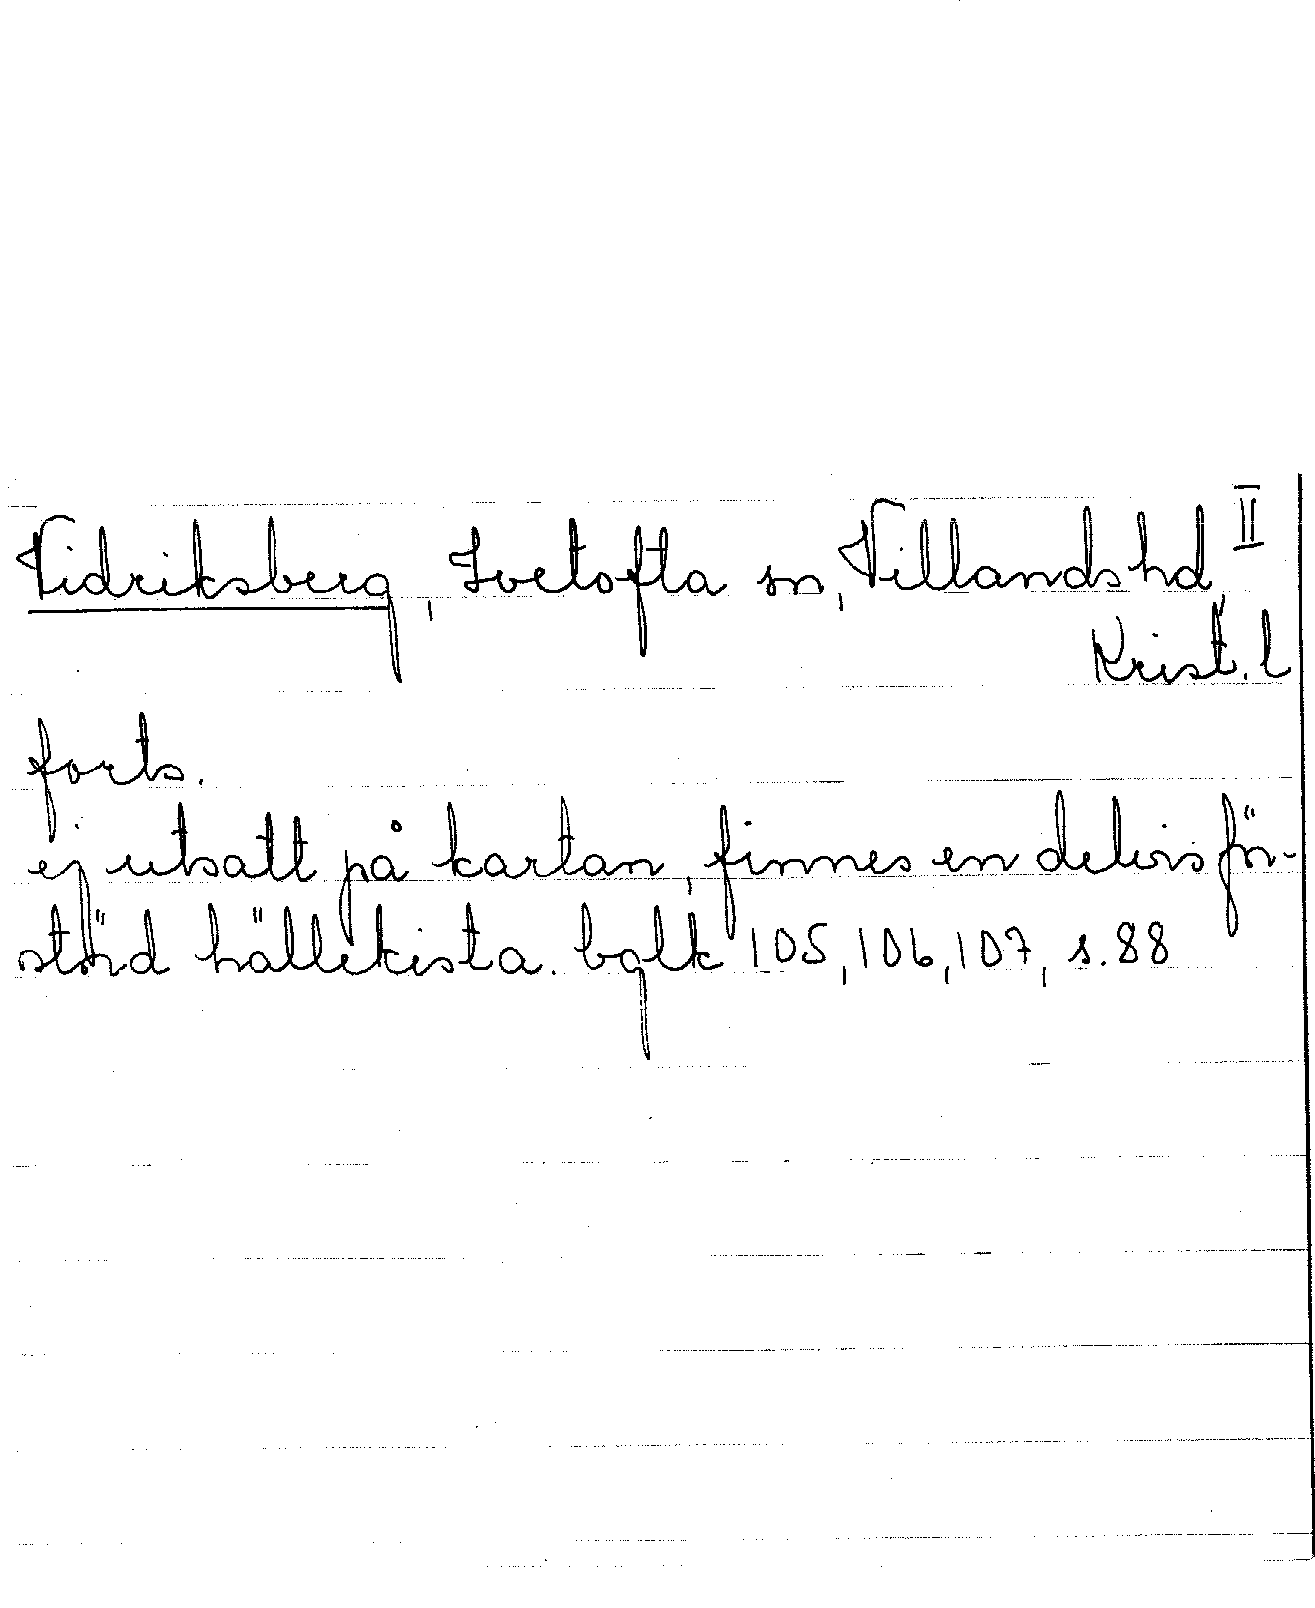 Vidriksberg, Ivetofta sn, Villands hd, II
Krist. l
forts.
ej utsatt på kartan, finnes en delvis för-
störd hällekista. bglk 105, 106, 107, s. 88